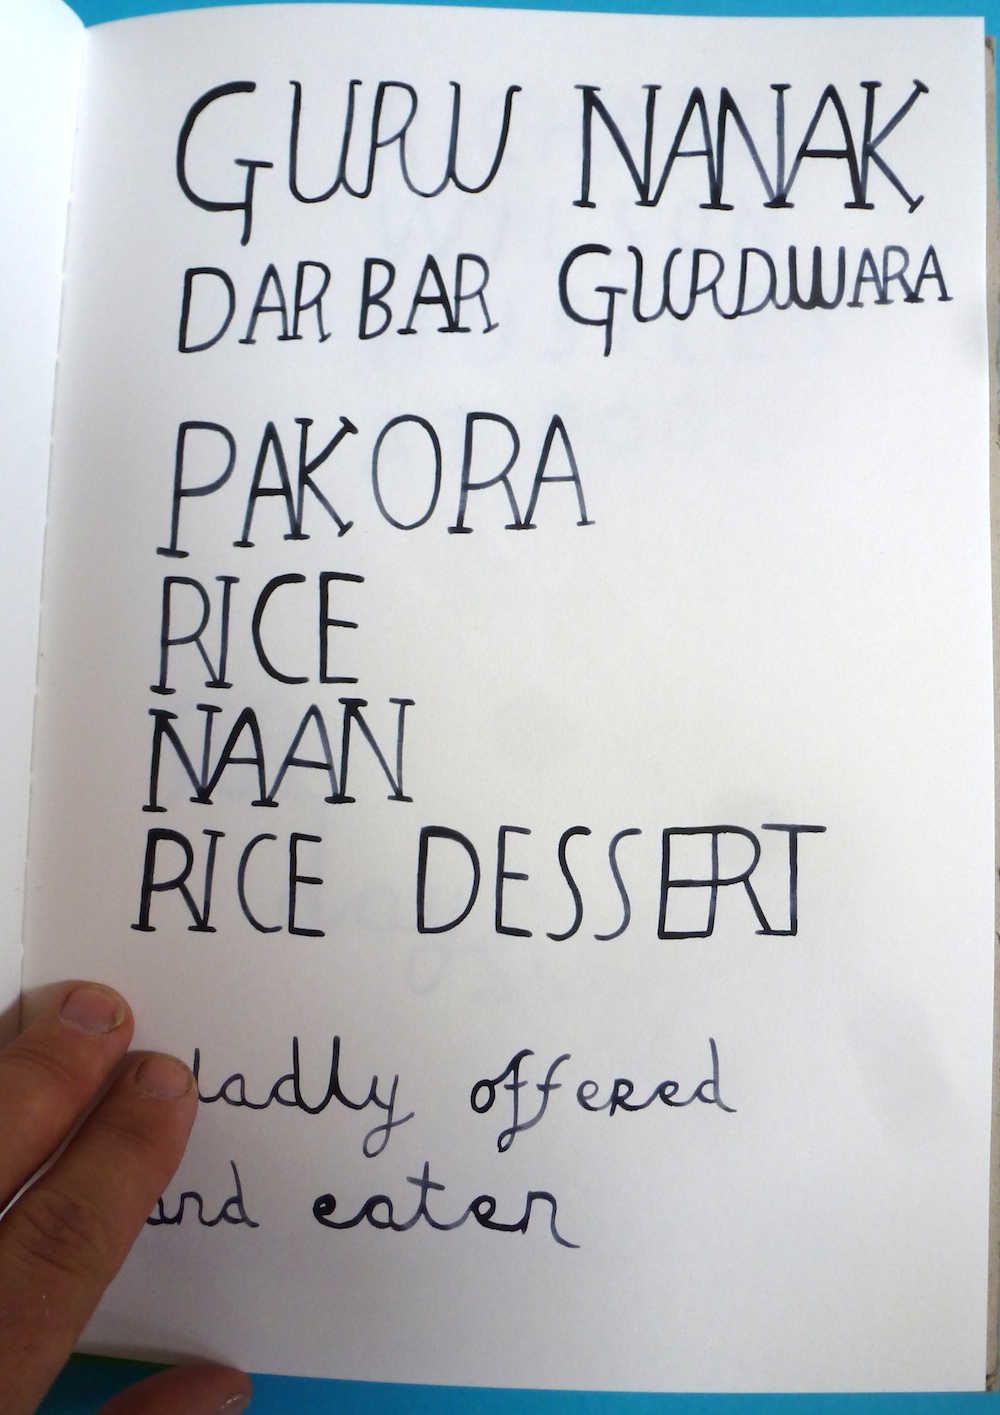 GURU NANAK
DARBAR GURDWARA
PAKORA
RICE
NAAN
RICE DESSERT
ladly offered
and eaten